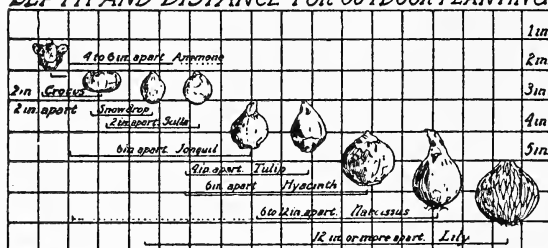 DEPTH AND DISTANCE FOR OUTDOOR PLANTING
1in
4 to 6 in. apart Anemone
2in.
2in Crocus
3in
2 in. apart Snowdrop
2in. apart. Scilla
4in
6in apart Jonquil
5in
4in. apart. Tulip
6in. apart Hyacinth
6 to 12 in. apart. Narcissus
12 in. or more apart. Lily